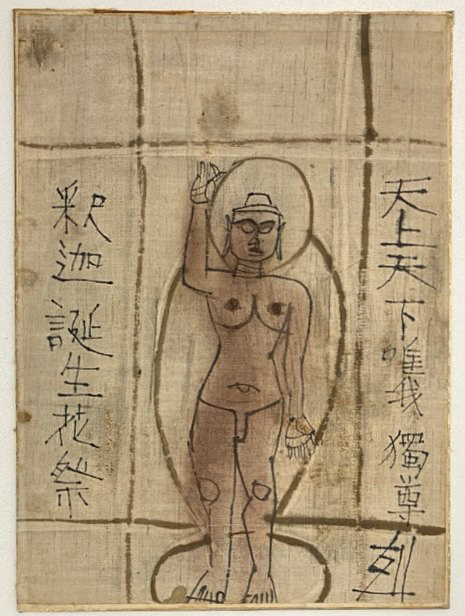 天上天下唯我獨尊
釈迦誕生花祭